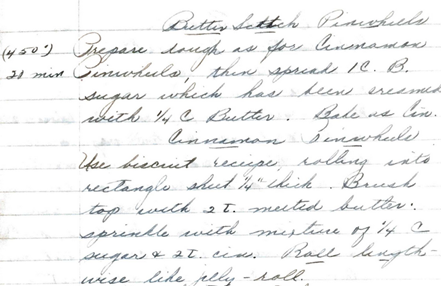 Butter Scotch Pinwheels
(450°) Prepare dough as for Cinnamon
20 min Pinwheels, then spread 1 C. B.
sugar which has been creamed
with ¼ C Butter. Bake as Cin.
Cinnamon Pinwheels
Use biscuit recipe, rolling into
rectangle sheet ¼" thick. Brush
top with 2 t. melted butter.
sprinkle with mixture of ¼ C
sugar & 2t. cin. Roll length-
wise like jelly-roll.